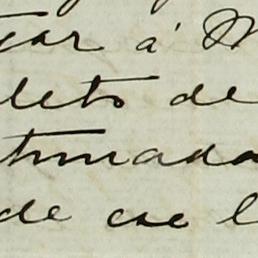 gar á M
leto de
timada
de ese l